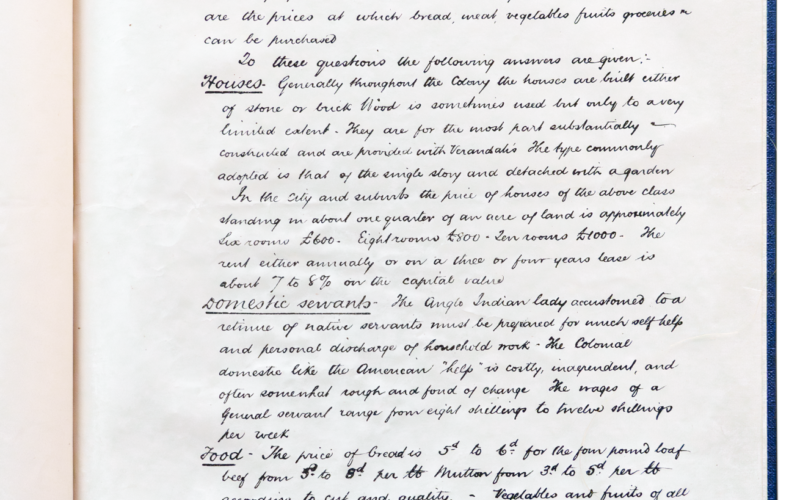 are the prices at which bread, meat, vegetables fruits groceries &c
can be purchased
To these questions the following answers are given:-
Houses- Generally throughout the Colony the houses are built either
of stone or brick Wood is sometimes used but only to a very
limited extent. They are for the most part substantially
constructed and are provided with Verandah's The type commonly
adopted is that of the single story and detached with a garden
In the City and suburbs the price of houses of the above class
standing in about one quarter of an acre of land is approximately
Six rooms £600- Eight rooms £800 - Ten rooms £1000- The
rent either annually or on a three or four years lease is
about 7 to 8% on the capital value
Domestic servants- The Anglo Indian lady accustomed to a
retinue of native servants must be prepared for much self help
and personal discharge of household work - The Colonial
domestic like the American "help" is costly, independent, and
often somewhat rough and fond of change The wages of a
General servant range from eight shillings to twelve shillings
per week
Food - The price of bread is 5d to 6d for the four pound loaf
beef from to 8d per lb Mutton from 3d to 5d per lb
according to cut and quality. - Vegetables and fruits of all